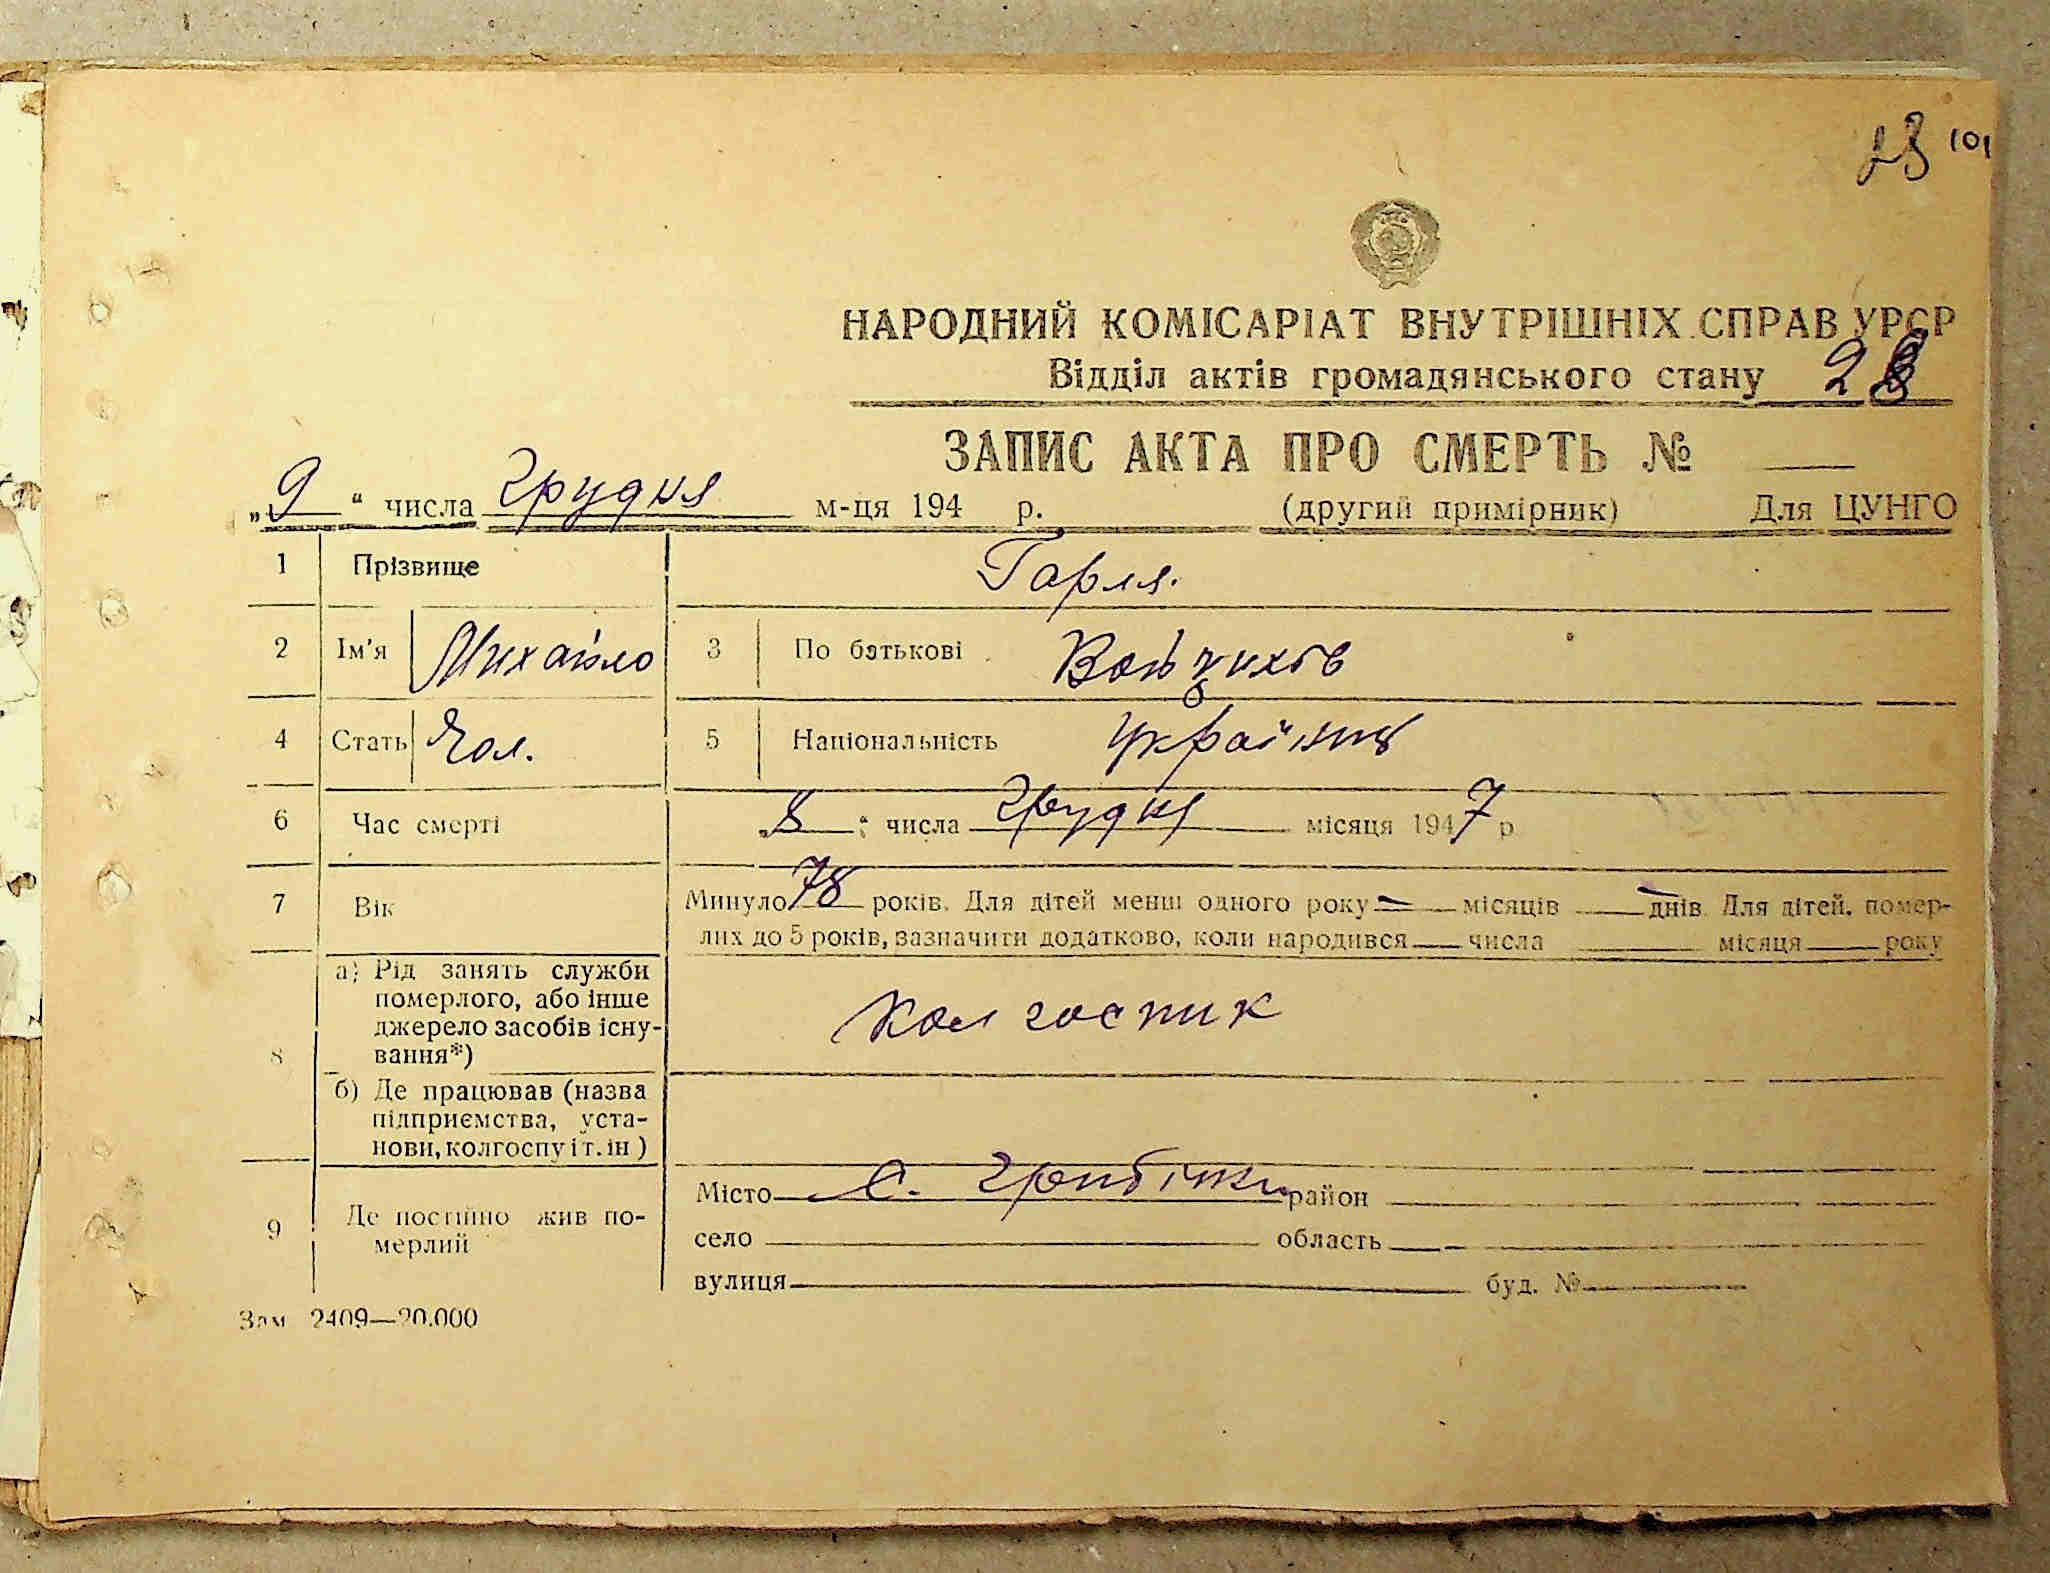 23 101
НАРОДНИЙ КОМІСАРІАТ ВНУТРІШНІХ СПРАВ УРСР
Відділ актів громадянського стану 28
ЗАПИС АКТА ПРО СМЕРТЬ №
„9“ числа грудня м-ця 194 р. (другий примірник) Для ЦУНГО
1 Прізвище Гарля.
2 Ім'я Михайло 3 По батькові
4 Стать Чол. 5 Національність Українець
6 Час смерті „8“ числа грудня місяця 1947 р
7 Вік Минуло 78 років. Для дітей менш одного року — місяців — днів. Для дітей, помер-
лих до 5 років, зазначити додатково, коли народився числа місяця року
8 а) Рід занять служби
померлого, або інше
джерело засобів існу-
вання*) колгоспник
б) Де працював (назва
підприємства, уста-
нови, колгоспу і т. ін )
9 Де постійно жив по-
мерлий
Місто с. район
село область
вулиця буд. №
Зам 2409—20.000